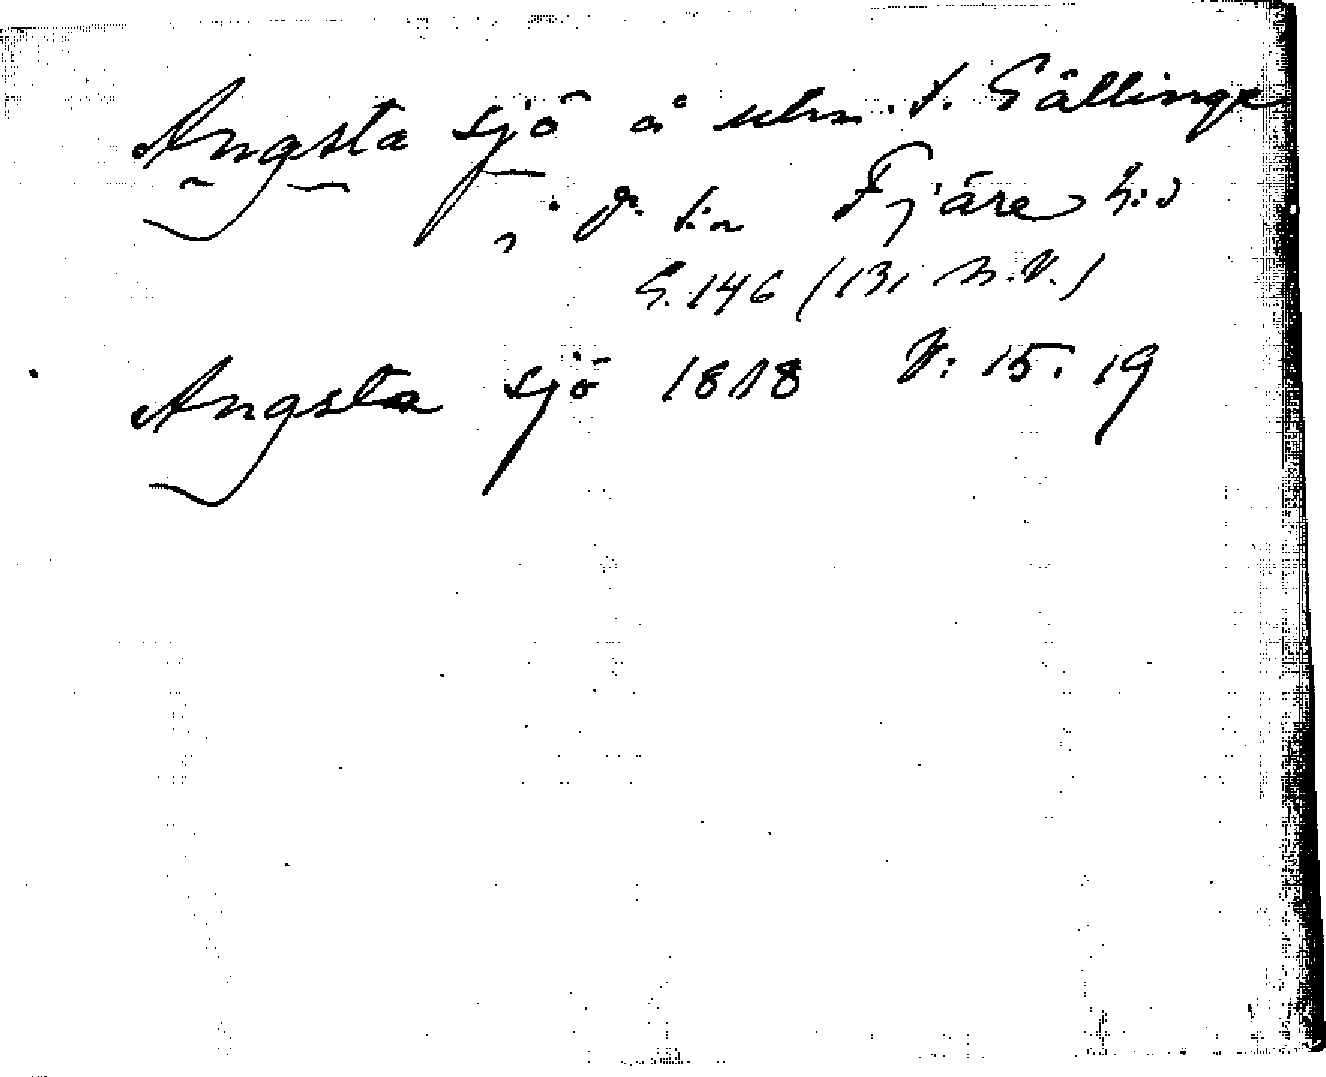 Angsta sjö å utm. t. Gällinge
i d. s:n Fjäre h:d
G. 146 (131 N.V.)
Angsta sjö 1818 V: 15. 19